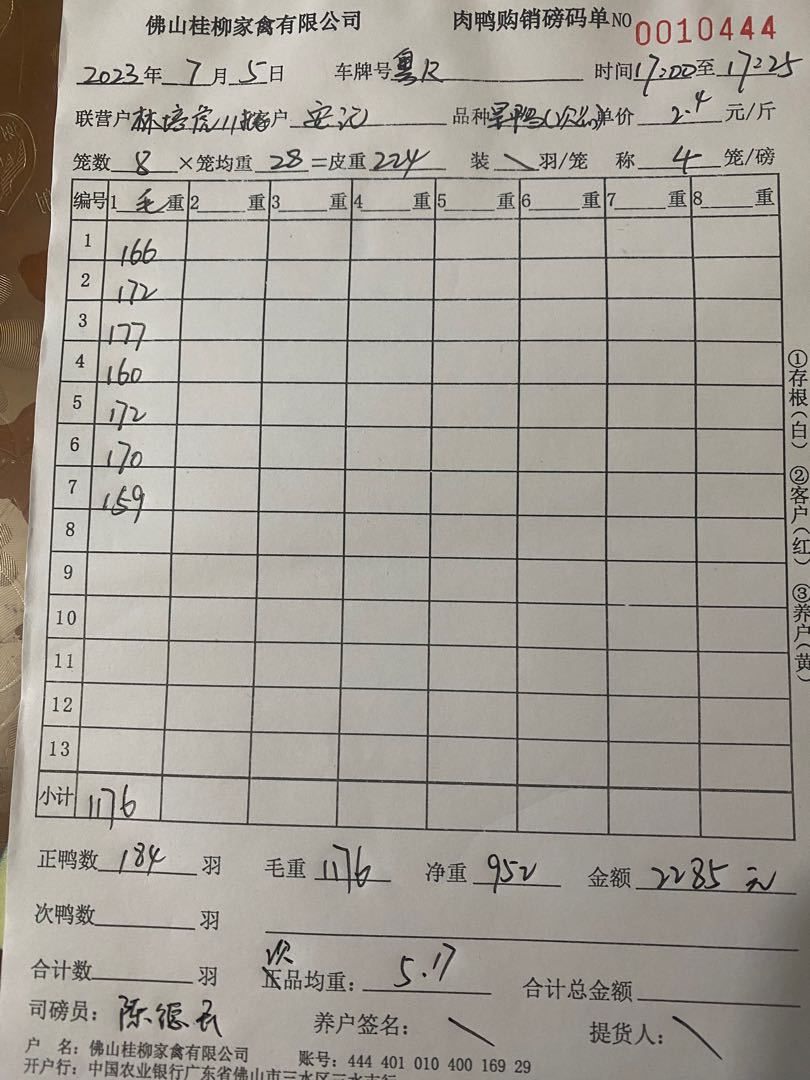 佛山桂柳家禽有限公司 肉鸭购销磅码单NO 0010444
2023年 7月 5日 车牌号 粤R 时间17:00至17:25
联营户 林培虎 户 安记 品种 (次) 单价 2.4 元/斤
笼数 8 ×笼均重 28 =皮重 224 装 \ 羽/笼 称 4 笼/磅
编号 1 毛 重 2 重 3 重 4 重 5 重 6 重 7 重 8 重
1 166
2 172
3 177
4 160
5 172
6 170
7 159
8
9
10
11
12
13
小计 1176
正鸭数 184 羽 毛重 1176 净重 952 金额 2285 元
次鸭数 羽
合计数 羽 次品均重: 5.17 合计总金额
司磅员: 陈德 养户签名: \ 提货人: \
户 名: 佛山桂柳家禽有限公司 账号: 444 401 010 400 169 29
开户行: 中国农业银行广东省佛山市三水区三水支行
①存根(白) ②客户(红) ③养户(黄)